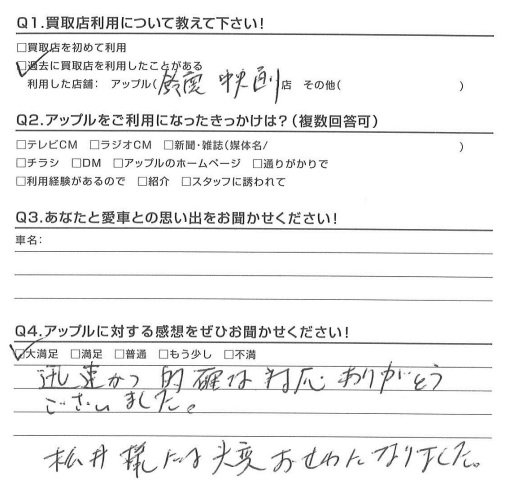 Q1.買取店利用について教えて下さい!
□買取店を初めて利用
☑過去に買取店を利用したことがある
利用した店舗: アップル(鈴鹿中央通り店 その他( )
Q2.アップルをご利用になったきっかけは?(複数回答可)
□テレビCM □ラジオCM □新聞・雑誌(媒体名/ )
□チラシ □DM □アップルのホームページ □通りがかりで
□利用経験があるので □紹介 □スタッフに誘われて
Q3.あなたと愛車との思い出をお聞かせください!
車名:
Q4.アップルに対する感想をぜひお聞かせください!
☑大満足 □満足 □普通 □もう少し □不満
迅速かつ的確な対応ありがとう
ございました。
松井様には大変おせわになりました。